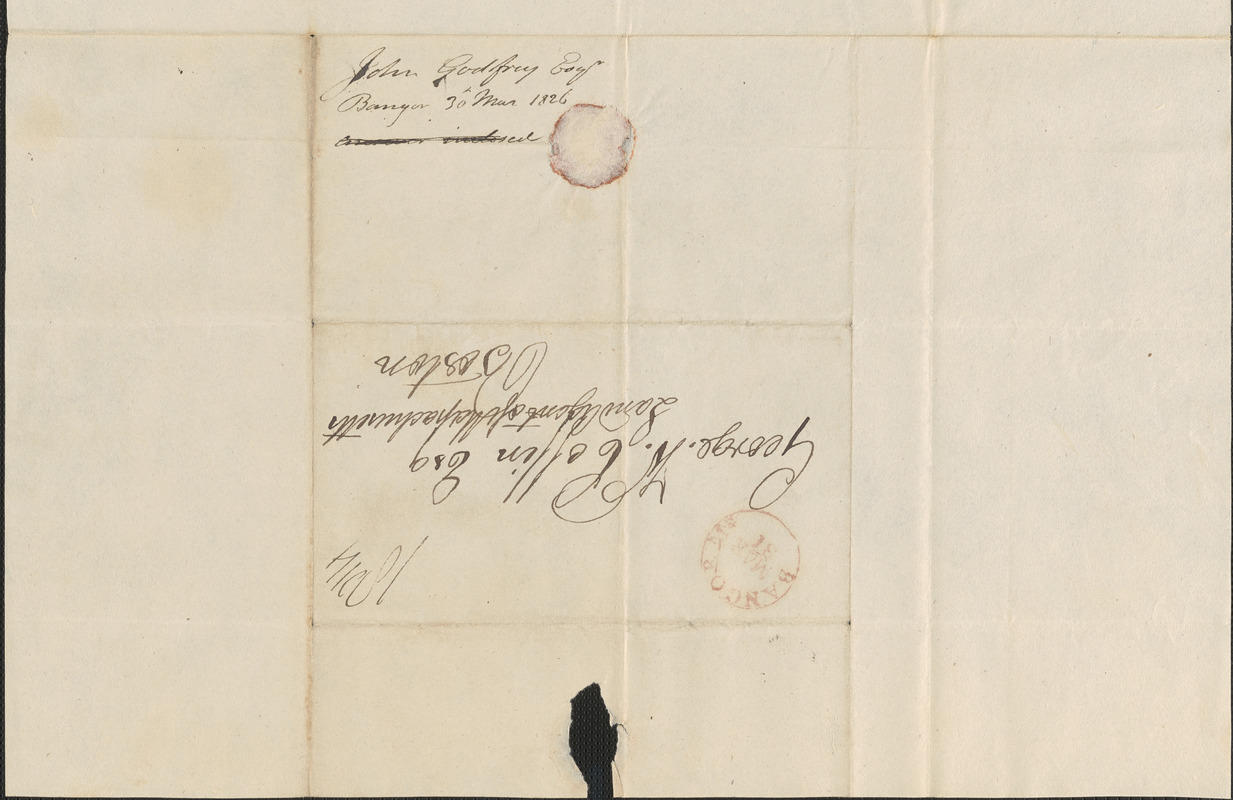 John Godfrey Esqr
Bangor 30 Mar 1826
answer inclosed
George. W. Coffin Esq
Land Agent of Massachusetts
Boston
18 3/4
BANGOR ME
MAR
31